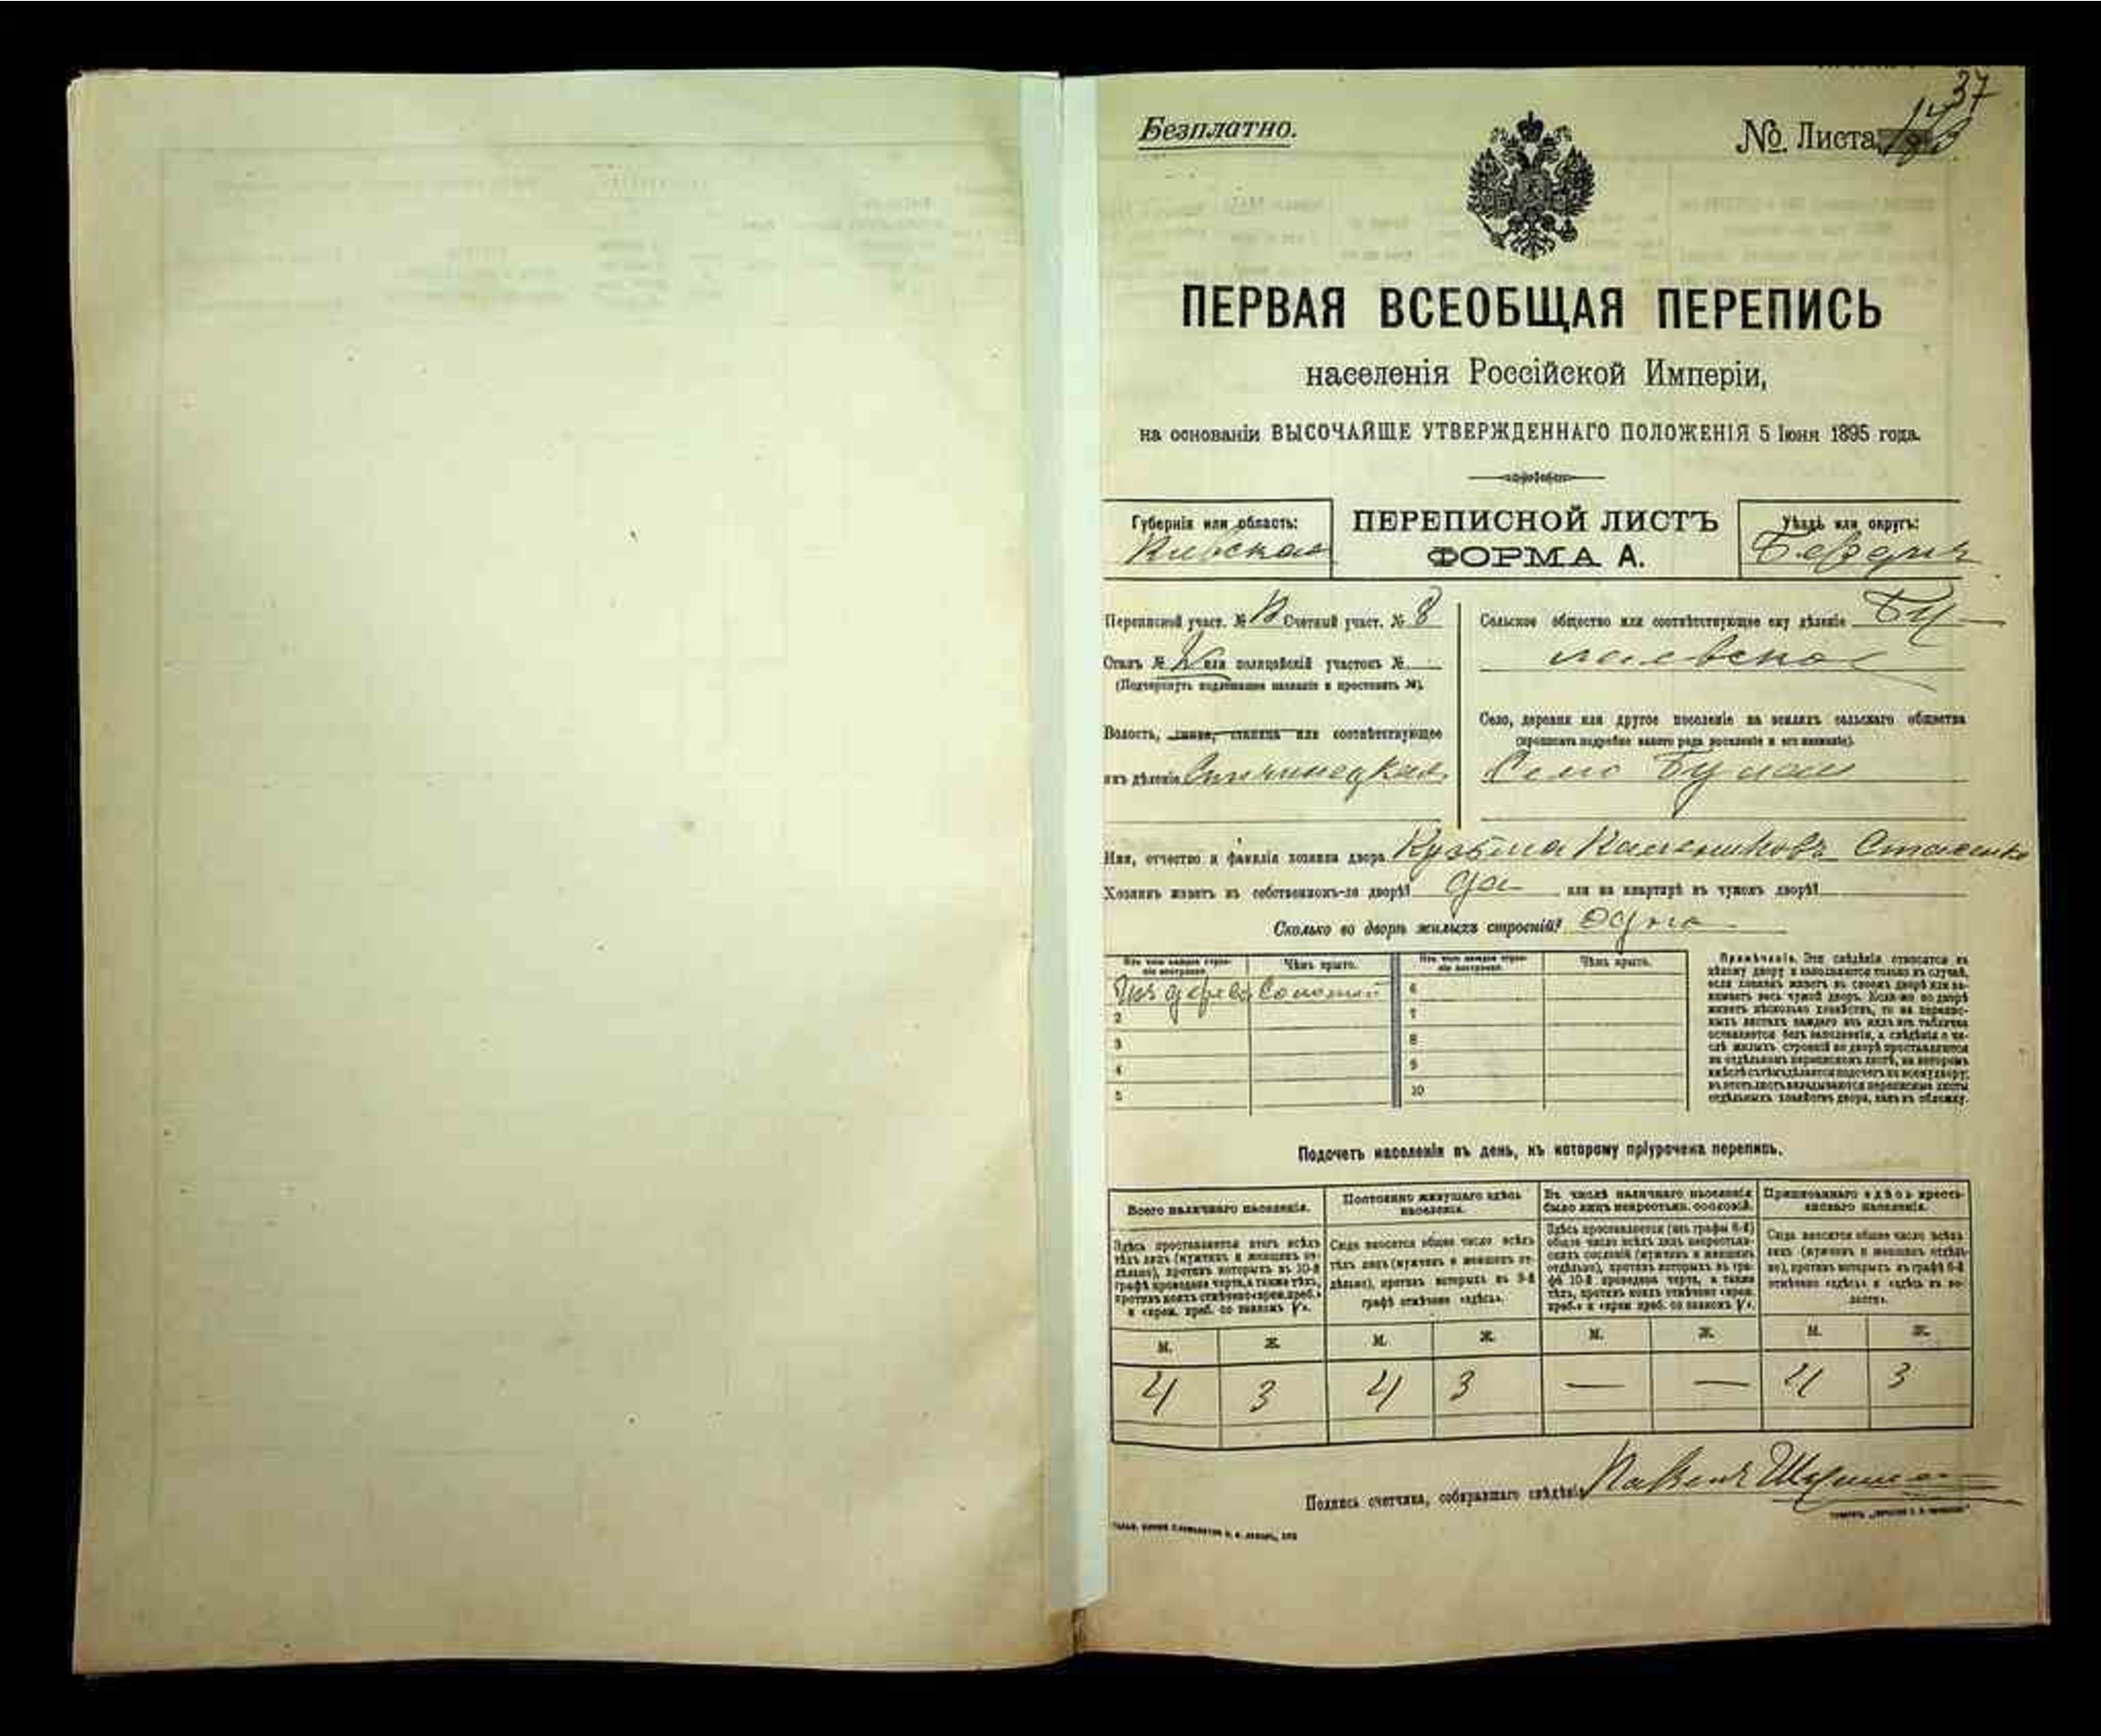 37
Безплатно.
№. Листа
ПЕРВАЯ ВСЕОБЩАЯ ПЕРЕПИСЬ
населенія Россійской Имперіи,
на основаніи ВЫСОЧАЙШЕ УТВЕРЖДЕННАГО ПОЛОЖЕНІЯ 5 Іюня 1895 года.
Губернія или область:
Киевская
ПЕРЕПИСНОЙ ЛИСТЪ
ФОРМА А.
Уѣздъ или округъ:
Бердич
Переписной участ. № Счетный участ. № 8
Станъ № или полицейскій участокъ №
(Подчеркнуть подлежащее названіе и проставить №).
Волость, гмина, станица или соотвѣтствующее
имъ дѣленіе
Сельское общество или соотвѣтствующее ему дѣленіе
Село, деревня или другое поселеніе на земляхъ сельскаго общества
(прописать подробно какого рода поселеніе и его названіе).
Село
Имя, отчество и фамилія хозяина двора Кузьма
Хозяинъ живетъ въ собственномъ-ли дворѣ? да или на квартирѣ въ чужомъ дворѣ?
Сколько во дворѣ жилыхъ строеній? одно
Изъ чего каждое строеніе построено.
Чѣмъ крыто.
Изъ чего каждое строеніе построено.
Чѣмъ крыто.
Изъ дерева Соломой
6
2
7
3
8
4
9
5
10
Примѣчаніе. Эти свѣдѣнія относятся къ
цѣлому двору и заполняются только въ случаѣ,
если хозяинъ живетъ въ своемъ дворѣ или за-
нимаетъ весь чужой дворъ. Если-же во дворѣ
живетъ нѣсколько хозяйствъ, то на перепис-
ныхъ листахъ каждаго изъ нихъ эта табличка
оставляется безъ заполненія, а свѣдѣнія о чи-
слѣ жилыхъ строеній во дворѣ проставляются
на отдѣльномъ переписномъ листѣ, на которомъ
вмѣстѣ съ тѣмъ дѣлается подсчетъ по всему двору;
въ этотъ листъ вкладываются переписные листы
отдѣльныхъ хозяйствъ двора, какъ въ обложку.
Подсчетъ населенія въ день, къ которому пріурочена перепись.
Всего наличнаго населенія.
Здѣсь проставляется итогъ всѣхъ
тѣхъ лицъ (мужчинъ и женщинъ от-
дѣльно), противъ которыхъ въ 10-й
графѣ проведена черта, а также тѣхъ,
противъ коихъ отмѣчено «врем. преб.»
и «врем. преб. со знакомъ V».
Постоянно живущаго здѣсь
населенія.
Сюда вносится общее число всѣхъ
тѣхъ лицъ (мужчинъ и женщинъ от-
дѣльно), противъ которыхъ въ 9-й
графѣ отмѣчено «здѣсь».
Въ числѣ наличнаго населенія
было лицъ некрестьян. сословій.
Здѣсь проставляется (изъ графы 6-й)
общее число всѣхъ лицъ некрестьян-
скихъ сословій (мужчинъ и женщинъ
отдѣльно), противъ которыхъ въ гра-
фѣ 10-й проведена черта, а также
тѣхъ, противъ коихъ отмѣчено «врем.
преб.» и «врем. преб. со знакомъ V».
Приписаннаго здѣсь кресть-
янскаго населенія.
Сюда вносится общее число всѣхъ
лицъ (мужчинъ и женщинъ отдѣль-
но), противъ которыхъ въ графѣ 8-й
отмѣчено «здѣсь» и «здѣсь въ во-
лости».
М. Ж. М. Ж. М. Ж. М. Ж.
4 3 4 3 — — 4 3
Подпись счетчика, собиравшаго свѣдѣнія